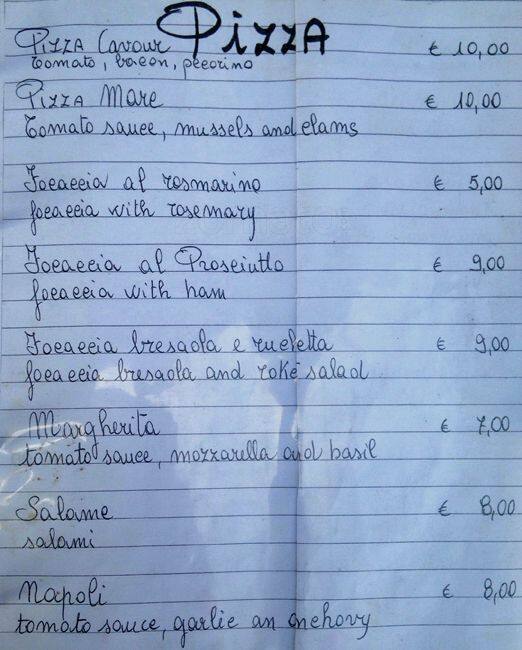 Pizza
Pizza Cavour € 10,00
tomato, bacon, pecorino
Pizza Mare € 10,00
Tomato sauce, mussels and clams
Focaccia al rosmarino € 5,00
focaccia with rosemary
Focaccia al Prosciutto € 9,00
focaccia with ham
Focaccia bresaola e rucletta € 9,00
focaccia bresaola and roke salad
Margherita € 7,00
tomato sauce, mozzarella and basil
Salame € 8,00
salami
Napoli € 8,00
tomato sauce, garlic an anchovy